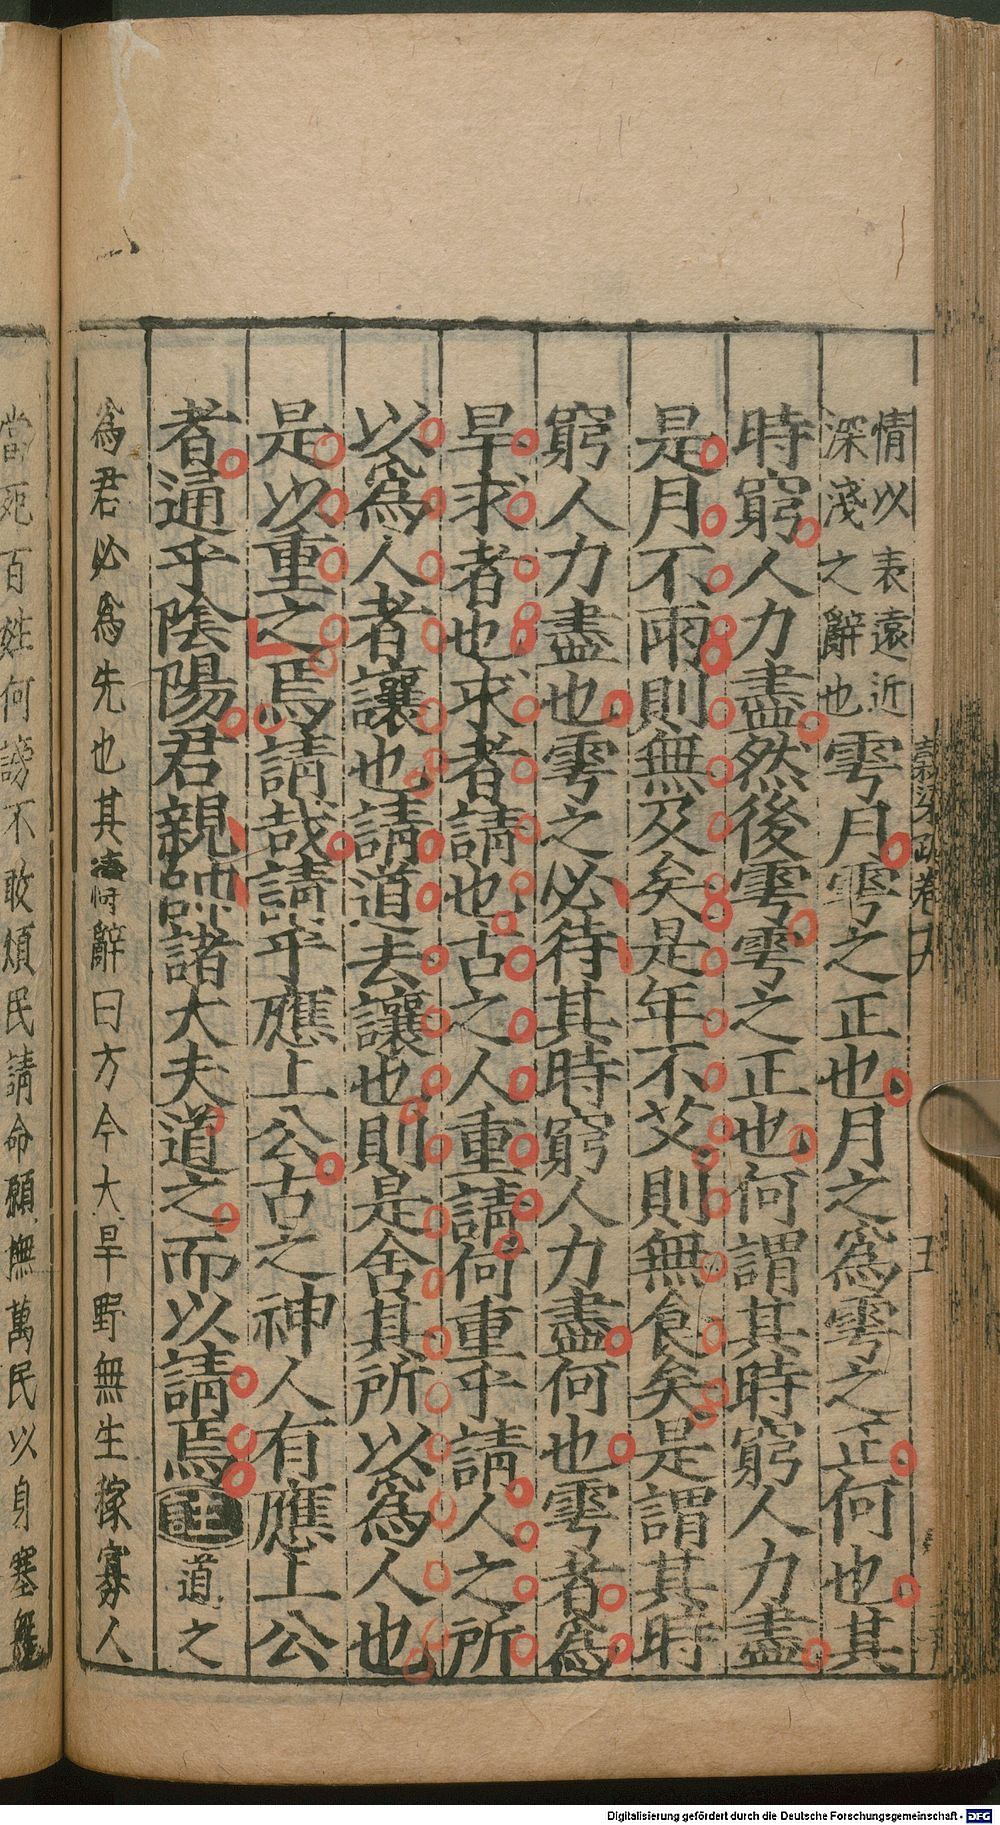 情以表遠近
深淺之辭也
雩月雩之正也月之爲雩之正何也其
時窮人力盡然後雩雩之正也何謂其時窮人力盡
是月不雨則無及矣是年不艾則無食矣是謂其時
窮人力盡也雩之必待其時窮人力盡何也雩者爲
旱求者也求者請也古之人重請何重乎請人之所
以爲人者讓也請道去讓也則是舍其所以爲人也
是以重之焉請哉請乎應上公古之神人有應上公
者通乎陰陽君親帥諸大夫道之而以請焉註道之
爲君必爲先也其禱辭曰方今大旱野無生稼寡人
當死百姓何謗不敢煩民請命願撫萬民以身塞無
Digitalisierung gefördert durch die Deutsche Forschungsgemeinschaft - DFG